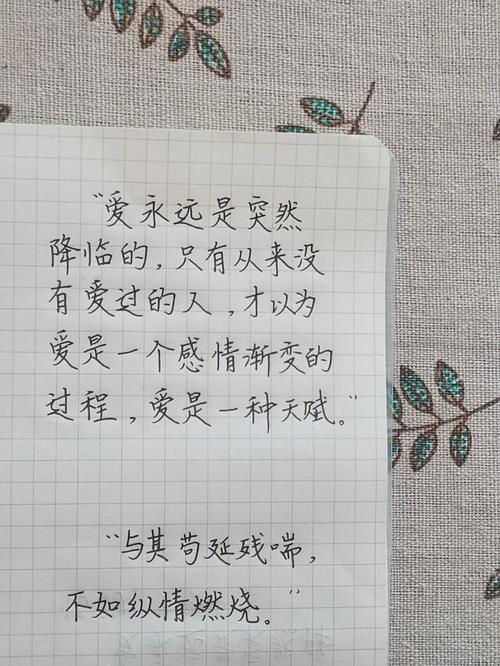 "爱永远是突然
降临的，只有从来没
有爱过的人，才以为
爱是一个感情渐变的
过程，爱是一种天赋。"
"与其苟延残喘，
不如纵情燃烧。"